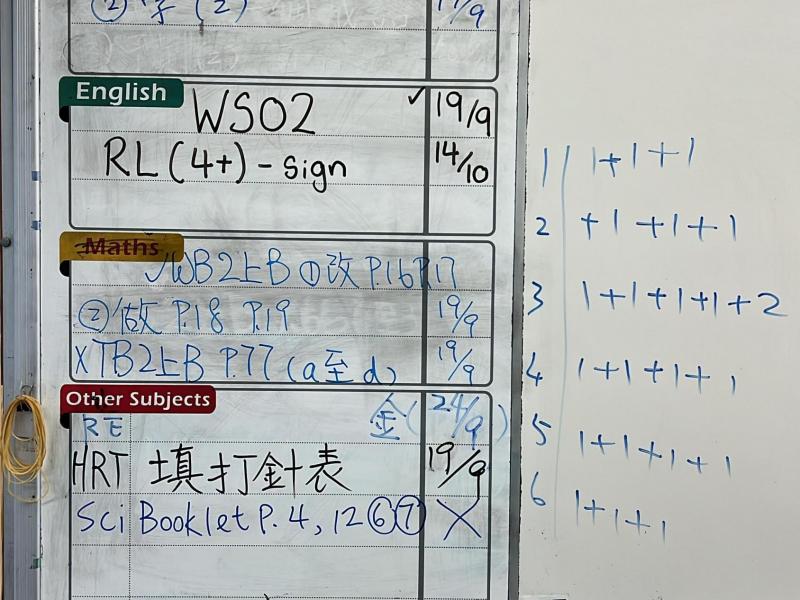 ② 字 (2) 17/9
English
WS02 ✓ 19/9
RL (4+) - sign 14/10
Maths
✓WB2上B ①改 P.16 P.17
② 做 P.18 P.19 19/9
X TB2上B P.77 (a至d) 19/9
Other Subjects
RE 金 (24/9)
HRT 填打針表 19/9
Sci Booklet P. 4, 12 ⑥⑦ X
1 | 1+1+1
2 | +1+1+1
3 | 1+1+1+1+2
4 | 1+1+1+1
5 | 1+1+1+1
6 | 1+1+1